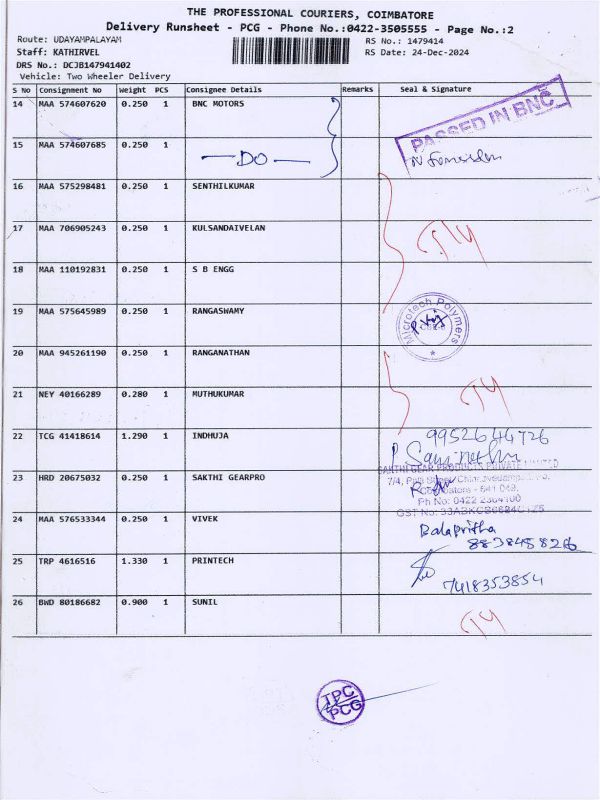 THE PROFESSIONAL COURIERS, COIMBATORE
Delivery Runsheet - PCG - Phone No.:0422-3505555 - Page No.:2
Route: UDAYAMPALAYAM
RS No.: 1479414
Staff: KATHIRVEL
RS Date: 24-Dec-2024
DRS No.: DCJB147941402
Vehicle: Two Wheeler Delivery
S No Consignment No Weight PCS Consignee Details Remarks Seal & Signature
14 MAA 574607620 0.250 1 BNC MOTORS
PASSED IN BNC
15 MAA 574607685 0.250 1 DO
16 MAA 575298481 0.250 1 SENTHILKUMAR
17 MAA 706905243 0.250 1 KULSANDAIVELAN
18 MAA 110192831 0.250 1 S B ENGG
19 MAA 575645989 0.250 1 RANGASWAMY
Microtech Polymers
20 MAA 945261190 0.250 1 RANGANATHAN
21 NEY 40166289 0.280 1 MUTHUKUMAR
22 TCG 41418614 1.290 1 INDHUJA
9952644726
23 HRD 20675032 0.250 1 SAKTHI GEARPRO
SAKTHI GEAR PRODUCTS PRIVATE LIMITED
Coimbatore - 641 049.
Ph No: 0422 2304100
24 MAA 576533344 0.250 1 VIVEK
Balapritha
8838458216
25 TRP 4616516 1.330 1 PRINTECH
7418353854
26 BWD 80186682 0.900 1 SUNIL
TPC
PCG